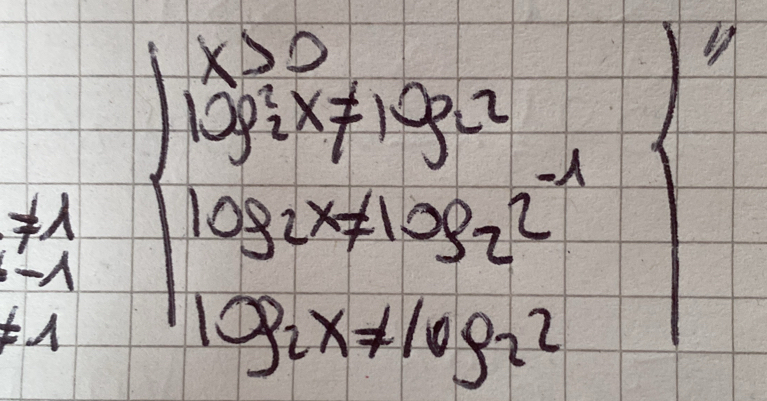 x>0
log₂²x≠log₂2
≠1
log₂x≠log₂2⁻¹
-1
≠1
log₂x≠log₂2
"